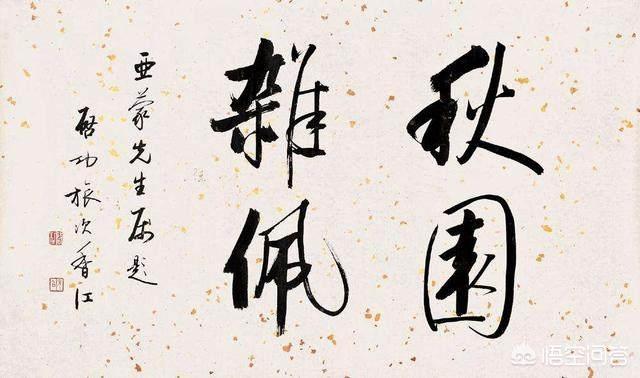 秋園
雜佩
亞蒙先生属題
啓功旅次香江
悟空问答